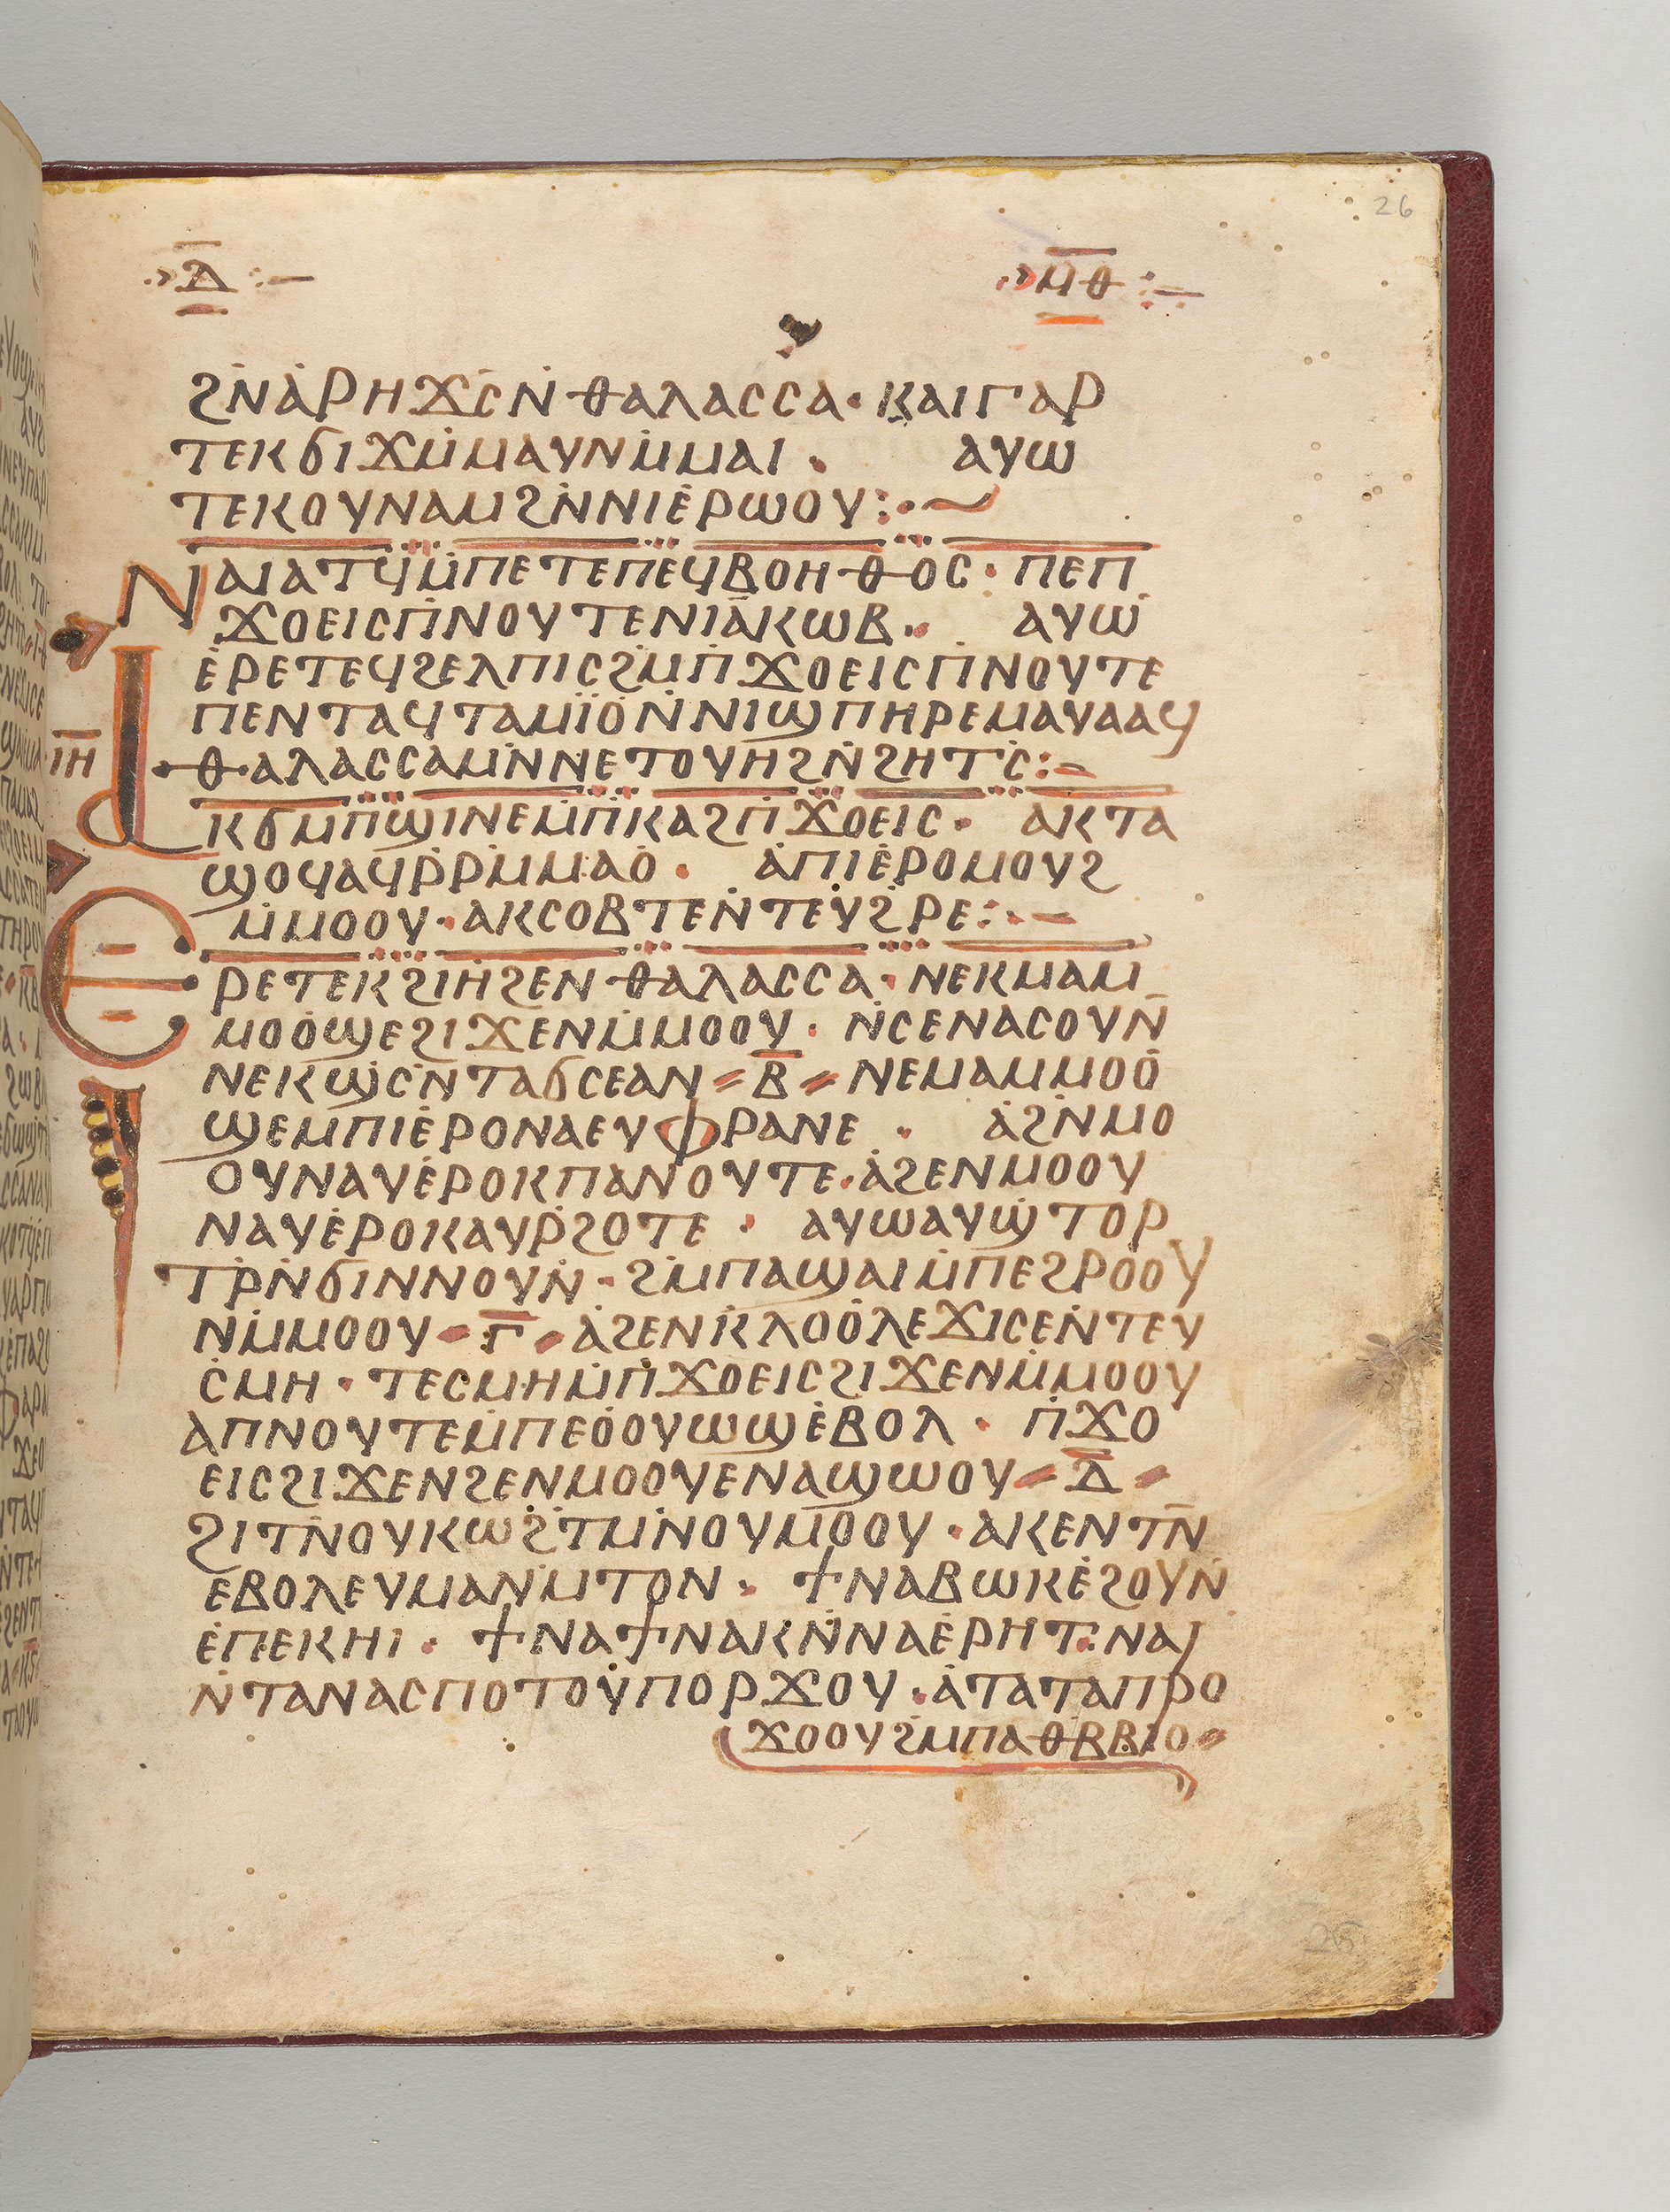 26
Ⲇ ⲘⲐ
ϨⲚⲀⲢⲎϪⲤⲚⲐⲀⲖⲀⲤⲤⲀ· ⲔⲀⲒⲄⲀⲢ
ⲦⲈⲔϬⲒϪⲘⲘⲀⲨⲚⲘⲘⲀⲒ · ⲀⲨⲰ
ⲦⲈⲔⲞⲨⲚⲀⲘϨⲚⲚⲒⲈⲢⲰⲞⲨ:·~
ⲚⲀⲒⲀⲦϤⲘⲠⲈⲦⲈⲠⲈϤⲂⲞⲎⲐⲞⲤ· ⲠⲈⲠ
ϪⲞⲈⲒⲤⲠⲚⲞⲨⲦⲈⲚⲒⲀⲔⲰⲂ· ⲀⲨⲰ
ⲈⲢⲈⲦⲈϤϨⲈⲖⲠⲒⲤϨⲘⲠϪⲞⲈⲒⲤⲠⲚⲞⲨⲦⲈ
ⲠⲈⲚⲦⲀϤⲦⲀⲘⲒⲞⲚⲚⲒϢⲠⲎⲢⲈⲘⲀⲨⲀⲀϤ
ⲒⲎ ⲐⲀⲖⲀⲤⲤⲀⲘⲚⲚⲈⲦⲞⲨⲎϨⲚϨⲎⲦⲤ:-
ⲀⲔϬⲘⲠϢⲒⲚⲈⲘⲠⲔⲀϨⲠϪⲞⲈⲒⲤ· ⲀⲔⲦⲀ
ϢⲞϤⲀϤⲢⲢⲘⲘⲀⲞ· ⲀⲠⲒⲈⲢⲞⲘⲞⲨϨ
ⲘⲘⲞⲞⲨ· ⲀⲔⲤⲞⲂⲦⲈⲚⲦⲈⲨϨⲢⲈ:·-
ⲈⲢⲈⲦⲈⲔϨⲒⲎϨⲈⲚⲐⲀⲖⲀⲤⲤⲀ· ⲚⲈⲔⲘⲀⲘ
ⲘⲞⲞϢⲈϨⲒϪⲈⲚⲘⲘⲞⲞⲨ· ⲚⲤⲈⲚⲀⲤⲞⲨⲚ
ⲚⲈⲔϢⲤⲚⲦⲀϬⲤⲈⲀⲚ Ⲃ ⲚⲈⲘⲀⲘⲘⲞⲞ
ϢⲈⲘⲠⲒⲈⲢⲞⲚⲀⲈⲨⲪⲢⲀⲚⲈ · ⲀϨⲚⲘⲞ
ⲞⲨⲚⲀⲨⲈⲢⲞⲔⲠⲀⲚⲞⲨⲦⲈ· ⲀϨⲈⲚⲘⲞⲞⲨ
ⲚⲀⲨⲈⲢⲞⲔⲀⲨⲢϨⲞⲦⲈ · ⲀⲨⲰⲀⲨϢⲦⲞⲢ
ⲦⲢⲚϬⲒⲚⲚⲞⲨⲚ· ϨⲘⲠⲀϢⲀⲒⲘⲠⲈϨⲢⲞⲞⲨ
ⲚⲘⲘⲞⲞⲨ Ⲅ ⲀϨⲈⲚⲔⲖⲞⲞⲖⲈϪⲒⲤⲈⲚⲦⲈⲨ
ⲤⲘⲎ· ⲦⲈⲤⲘⲎⲘⲠϪⲞⲈⲒⲤϨⲒϪⲈⲚⲘⲘⲞⲞⲨ
ⲀⲠⲚⲞⲨⲦⲈⲘⲠⲈⲞⲞⲨⲰϢⲈⲂⲞⲖ · ⲠϪⲞ
ⲈⲒⲤϨⲒϪⲈⲚϨⲈⲚⲘⲞⲞⲨⲈⲚⲀϢⲰⲞⲨ Ⲇ
ϨⲒⲦⲚⲞⲨⲔⲰϨⲦⲘⲚⲞⲨⲘⲞⲞⲨ· ⲀⲔⲈⲚⲦⲚ
ⲈⲂⲞⲖⲈⲨⲘⲀⲚⲘⲦⲞⲚ· ϮⲚⲀⲂⲰⲔⲈϨⲞⲨⲚ
ⲈⲠⲈⲔⲎⲒ· ϮⲚⲀϮⲚⲀⲔⲚⲚⲀⲈⲢⲎⲦ· ⲚⲀⲒ
ⲚⲦⲀⲚⲀⲤⲠⲞⲦⲞⲨⲠⲞⲢϪⲞⲨ· ⲀⲦⲀⲦⲀⲠⲢⲞ
ϪⲞⲞⲨϨⲘⲠⲀⲐⲂⲂⲒⲞ